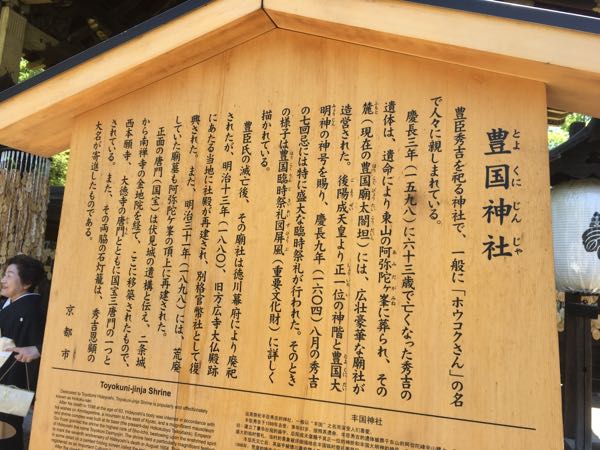 豊国神社
とよくにじんじゃ
豊臣秀吉を祀る神社で、一般に「ホウコクさん」の名
で人々に親しまれている。
慶長三年(一五九八)に六十三歳で亡くなった秀吉の
遺体は、遺命により東山の阿弥陀ヶ峯に葬られ、その
麓(現在の豊国廟太閤坦)には、広壮豪華な廟社が
造営された。後陽成天皇より正一位の神階と豊国大
明神の神号を賜り、慶長九年(一六〇四)八月の秀吉
の七回忌には特に盛大な臨時祭礼が行われた。そのとき
の様子は豊国臨時祭礼図屏風(重要文化財)に詳しく
描かれている。
豊臣氏の滅亡後、その廟社は徳川幕府により廃祀
されたが、明治十三年(一八八〇)、旧方広寺大仏殿跡
にあたる当地に社殿が再建され、別格官幣社として復
興された。また、明治三十一年(一八九八)には、荒廃
していた廟墓も阿弥陀ヶ峯の頂上に再建された。
正面の唐門(国宝)は伏見城の遺構と伝え、二条城
から南禅寺の金地院を経て、ここに移築されたもので、
西本願寺、大徳寺の唐門とともに国宝三唐門の一つと
されている。また、その両脇の石灯籠は、秀吉恩顧の
大名が寄進したものである。
京都市
Toyokuni-jinja Shrine
Dedicated to Toyotomi Hideyoshi, Toyokuni-jinja Shrine is popularly and affectionately
known as Hokoku-san.
After his death in 1598 at the age of 63, Hideyoshi's body was interred in accordance with
丰国神社